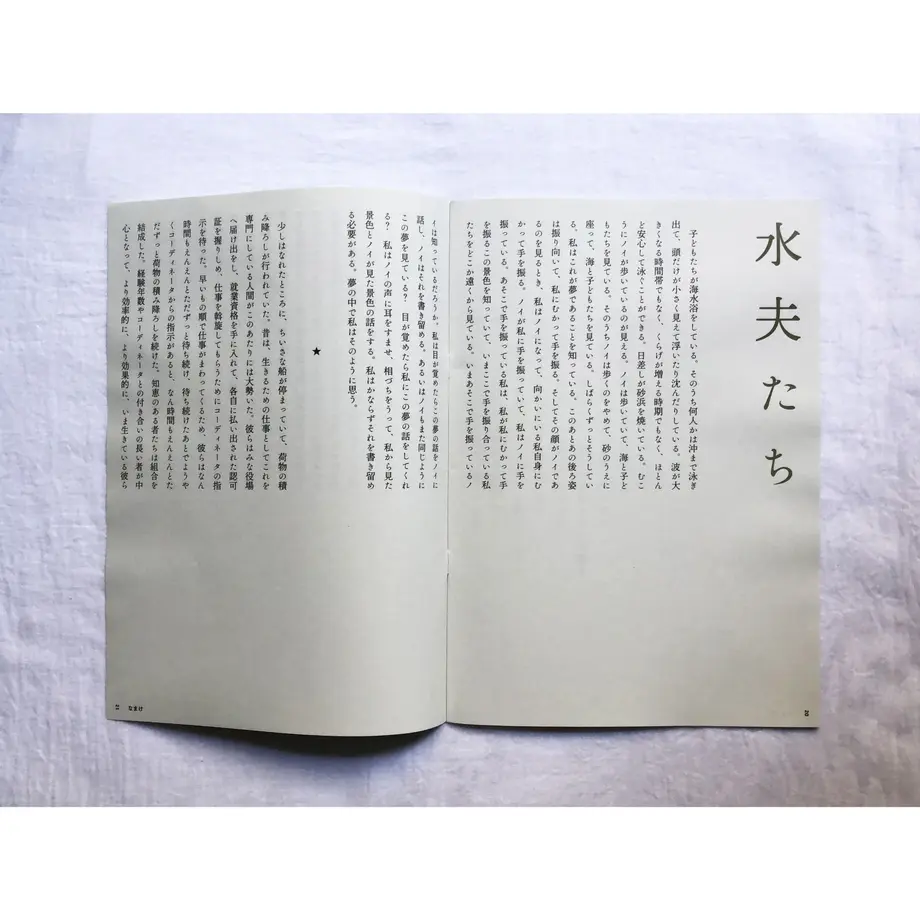 水夫たち
子どもたちが海水浴をしている。そのうち何人かは沖まで泳ぎ
出て、頭だけが小さく見えて浮いたり沈んだりしている。波が大
きくなる時間帯でもなく、くらげが増える時期でもなく、ほとん
ど安心して泳ぐことができる。日差しが砂浜を焼いている。むこ
うにノイが歩いているのが見える。ノイは歩いていて、海と子ど
もたちを見ている。そのうちノイは歩くのをやめて、砂のうえに
座って、海と子どもたちを見ている。しばらくずっとそうしてい
る。私はこれが夢であることを知っている。このあとあの後ろ姿
は振り向いて、私にむかって手を振る。そしてその顔がノイであ
るのを見るとき、私はノイになって、向かいにいる私自身にむ
かって手を振る。ノイが私に手を振っていて、私はノイに手を
振っている。あそこで手を振っている私は、私が私にむかって手
を振るこの景色を知っていて、いまここで手を振り合っている私
たちをどこか遠くから見ている。いまあそこで手を振っているノ
イは知っているだろうか。私は目が覚めたらこの夢の話をノイに
話し、ノイはそれを書き留める。あるいはノイもまた同じように
この夢を見ている？　目が覚めたら私にこの夢の話をしてくれ
る？　私はノイの声に耳をすませ、相づちをうって、私から見た
景色とノイが見た景色の話をする。私はかならずそれを書き留め
る必要がある。夢の中で私はそのように思う。
★
少しはなれたところに、ちいさな船が停まっていて、荷物の積
み降ろしが行われていた。昔は、生きるための仕事としてこれを
専門にしている人間がこのあたりには大勢いた。彼らはみな役場
へ届け出をし、就業資格を手に入れて、各自に払い出された認可
証を握りしめ、仕事を斡旋してもらうためにコーディネータの指
示を待った。早いもの順で仕事がまわってくるため、彼らはなん
時間もえんえんとただずっと待ち続け、待ち続けたあとでようや
くコーディネータからの指示があると、なん時間もえんえんとた
だずっと荷物の積み降ろしを続けた。知恵のある者たちは組合を
結成した。経験年数やコーディネータとの付き合いの長い者が中
心となって、より効率的に、より効果的に、いま生きている彼ら
20
21
なまけ